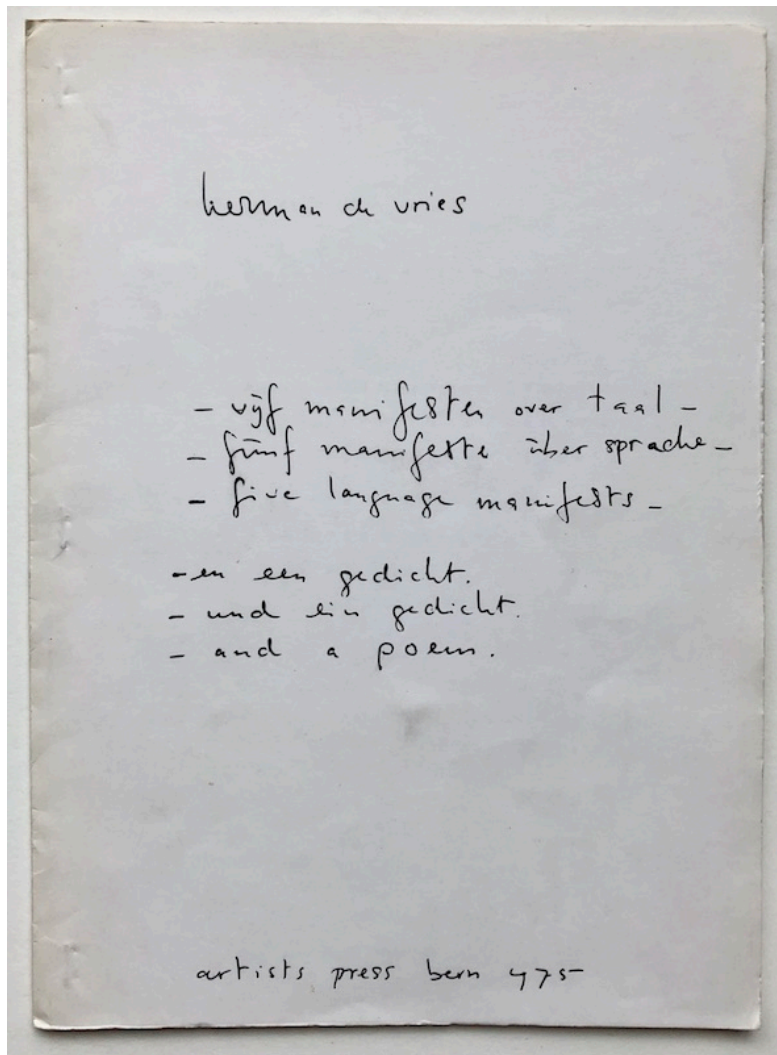 herman de vries
– vijf manifesten over taal –
– fünf manifeste über sprache –
– five language manifests –
– en een gedicht.
– und ein gedicht.
– and a poem.
artists press bern